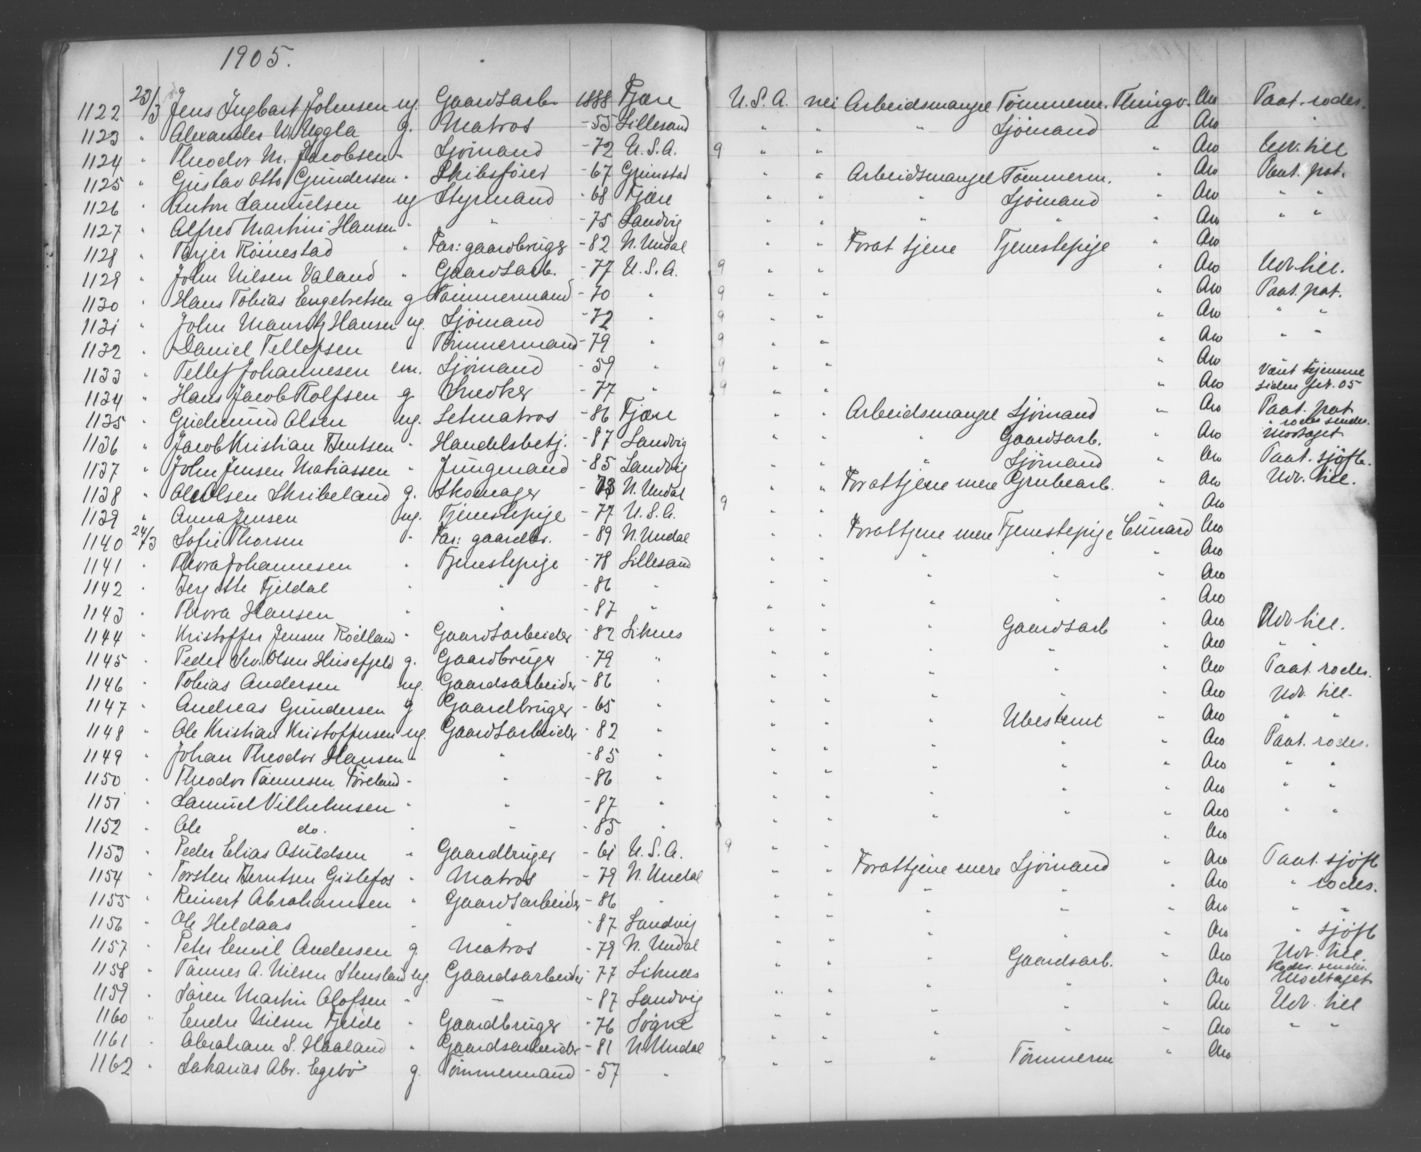 1905.
1122 23/3 Jens Ingbart Johnsen ug. Gaardsarb. 1888 Fjære U.S.A. nei Arbeidsmangel Tømmerm. Thingv. Aro Paat. rodes.
1123 " Alexander W. Uggla g. Matros - 55 Lillesand " " " Sjömand Aro "
1124 " Theodor M. Jacobsen - Sjömand - 72 U.S.A. 9 " " " Aro Udv. till
1125 " Gustav Otto Gundersen - Skibsfører - 67 Grimstad " " Arbeidsmangel Tømmerm. " Aro Paat. pat.
1126 " Anton Samuelsen ug Styrmand - 68 Fjære " " " Sjömand " Aro
1127 " Alfred Martin Hansen " " - 75 Landvig " " " " " Aro " "
1128 " Röinestad " Far: gaardbruger - 82 N. Undal " " For at tjene Tjenestepige " Aro
1129 " John Nilsen Valand " Gaardsarb. - 77 U.S.A. 9 " " " Aro Udv. till.
1130 " Hans Tobias Engebretsen g Tømmermand - 70 " 9 " " " Aro Paat. pat.
1131 " John Mauritz Hansen ug. Sjömand - 72 " 9 " " " Aro " "
1132 " Daniel Tellefsen " Tömmermand - 79 " 9 " " " Aro " "
1133 " Tellef Johannesen em. Sjömand - 59 " 9 " " " Aro Været hjemme
1134 " Hans Jacob Rolfsen g. Snedker - 77 " 9 " " " Aro siden 05
1135 " Gudmund Olsen ug. Letmatros - 86 Fjære " " Arbeidsmangel Sjömand " Aro Paat. pat.
1136 " Jacob Kristian Berntsen - Handelsbetj. - 87 Landvig " " " Gaardsarb. " Aro rodes sendes. Modtaget
1137 " John Jensen Matiassen - Jungmand - 85 Landvig " " " Sjömand " Aro Paat. sjöfb.
1138 " Ole Olsen Skribeland g. Skomager - 73 N. Undal " " For at tjene mere Grubearb. " Aro Udv. till.
1139 " Anna Jensen ug. Tjenestepige - 77 U.S.A. 9 " " " Aro
1140 24/3 Sofie Thorsen " Far: gaardbr. - 89 N. Undal " " For at tjene mere Tjenestepige Cunard Aro
1141 " Thora Johannesen " Tjenestepige - 78 Lillesand " " " " " Aro
1142 " Bergitte Fjeldal " " - 86 " " " " " " Aro
1143 " Thora Hansen " " - 87 " " " " " " Aro
1144 " Kristoffer Jensen - Gaardsarbeider - 82 Liknes " " " Gaardsarb " Aro Udv. till.
1145 " Peder Sev. Olsen Husefjeld g. Gaardbruger - 79 " " " " " " Aro " "
1146 " Tobias Andersen ug. Gaardsarbeider - 86 " " " " " " Aro Paat. rodes.
1147 " Andreas Gundersen g Gaardbruger - 65 " " " " " " Aro Udv. till.
1148 " Ole Kristian Kristoffersen ug. Gaardsarbeider - 82 " " " " Ubestemt " Aro " "
1149 " Johan Theodor Hansen " " - 85 " " " " " " Aro Paat. rodes.
1150 " Theodor Tønnesen Føreland - " - 86 " " " " " " Aro " "
1151 " Samuel Vilhelmsen " " - 87 " " " " " " Aro " "
1152 " Ole do. " " - 85 " " " " " " Aro " "
1153 " Peder Elias Asuldsen " Gaardbruger - 61 U.S.A. 9 " " " Aro
1154 " Torsten Berntsen Gislefos " Matros - 79 N. Undal " " For at tjene mere Sjömand " Aro Paat. sjöfb
1155 " Reinert Abrahamsen " Gaardsarbeider - 86 " " " " " " Aro " rodes.
1156 " Ole Heldaas " " - 87 Landvig " " " " " Aro " "
1157 " Peter Emil Andersen g Matros - 79 N. Undal " " " " " Aro " sjöfb
1158 " Tønnes A. Nilsen Stensland ug. Gaardsarbeider - 77 Liknes " " " Gaardsarb. " Aro Udv. till.
1159 " Søren Martin Olofsen " " - 87 Landvig " " " " " Aro Rodes. sendes. Modtaget
1160 " Endre Nilsen Fjelde " Gaardbruger - 76 Søgne " " " " " Aro Udv. till
1161 " Abraham S. Haaland " Gaardsarbeider - 81 N. Undal " " " " " Aro " "
1162 " Sakarias Abr. Egebö g. Tømmermand - 57 " " " " Tømmerm " Aro